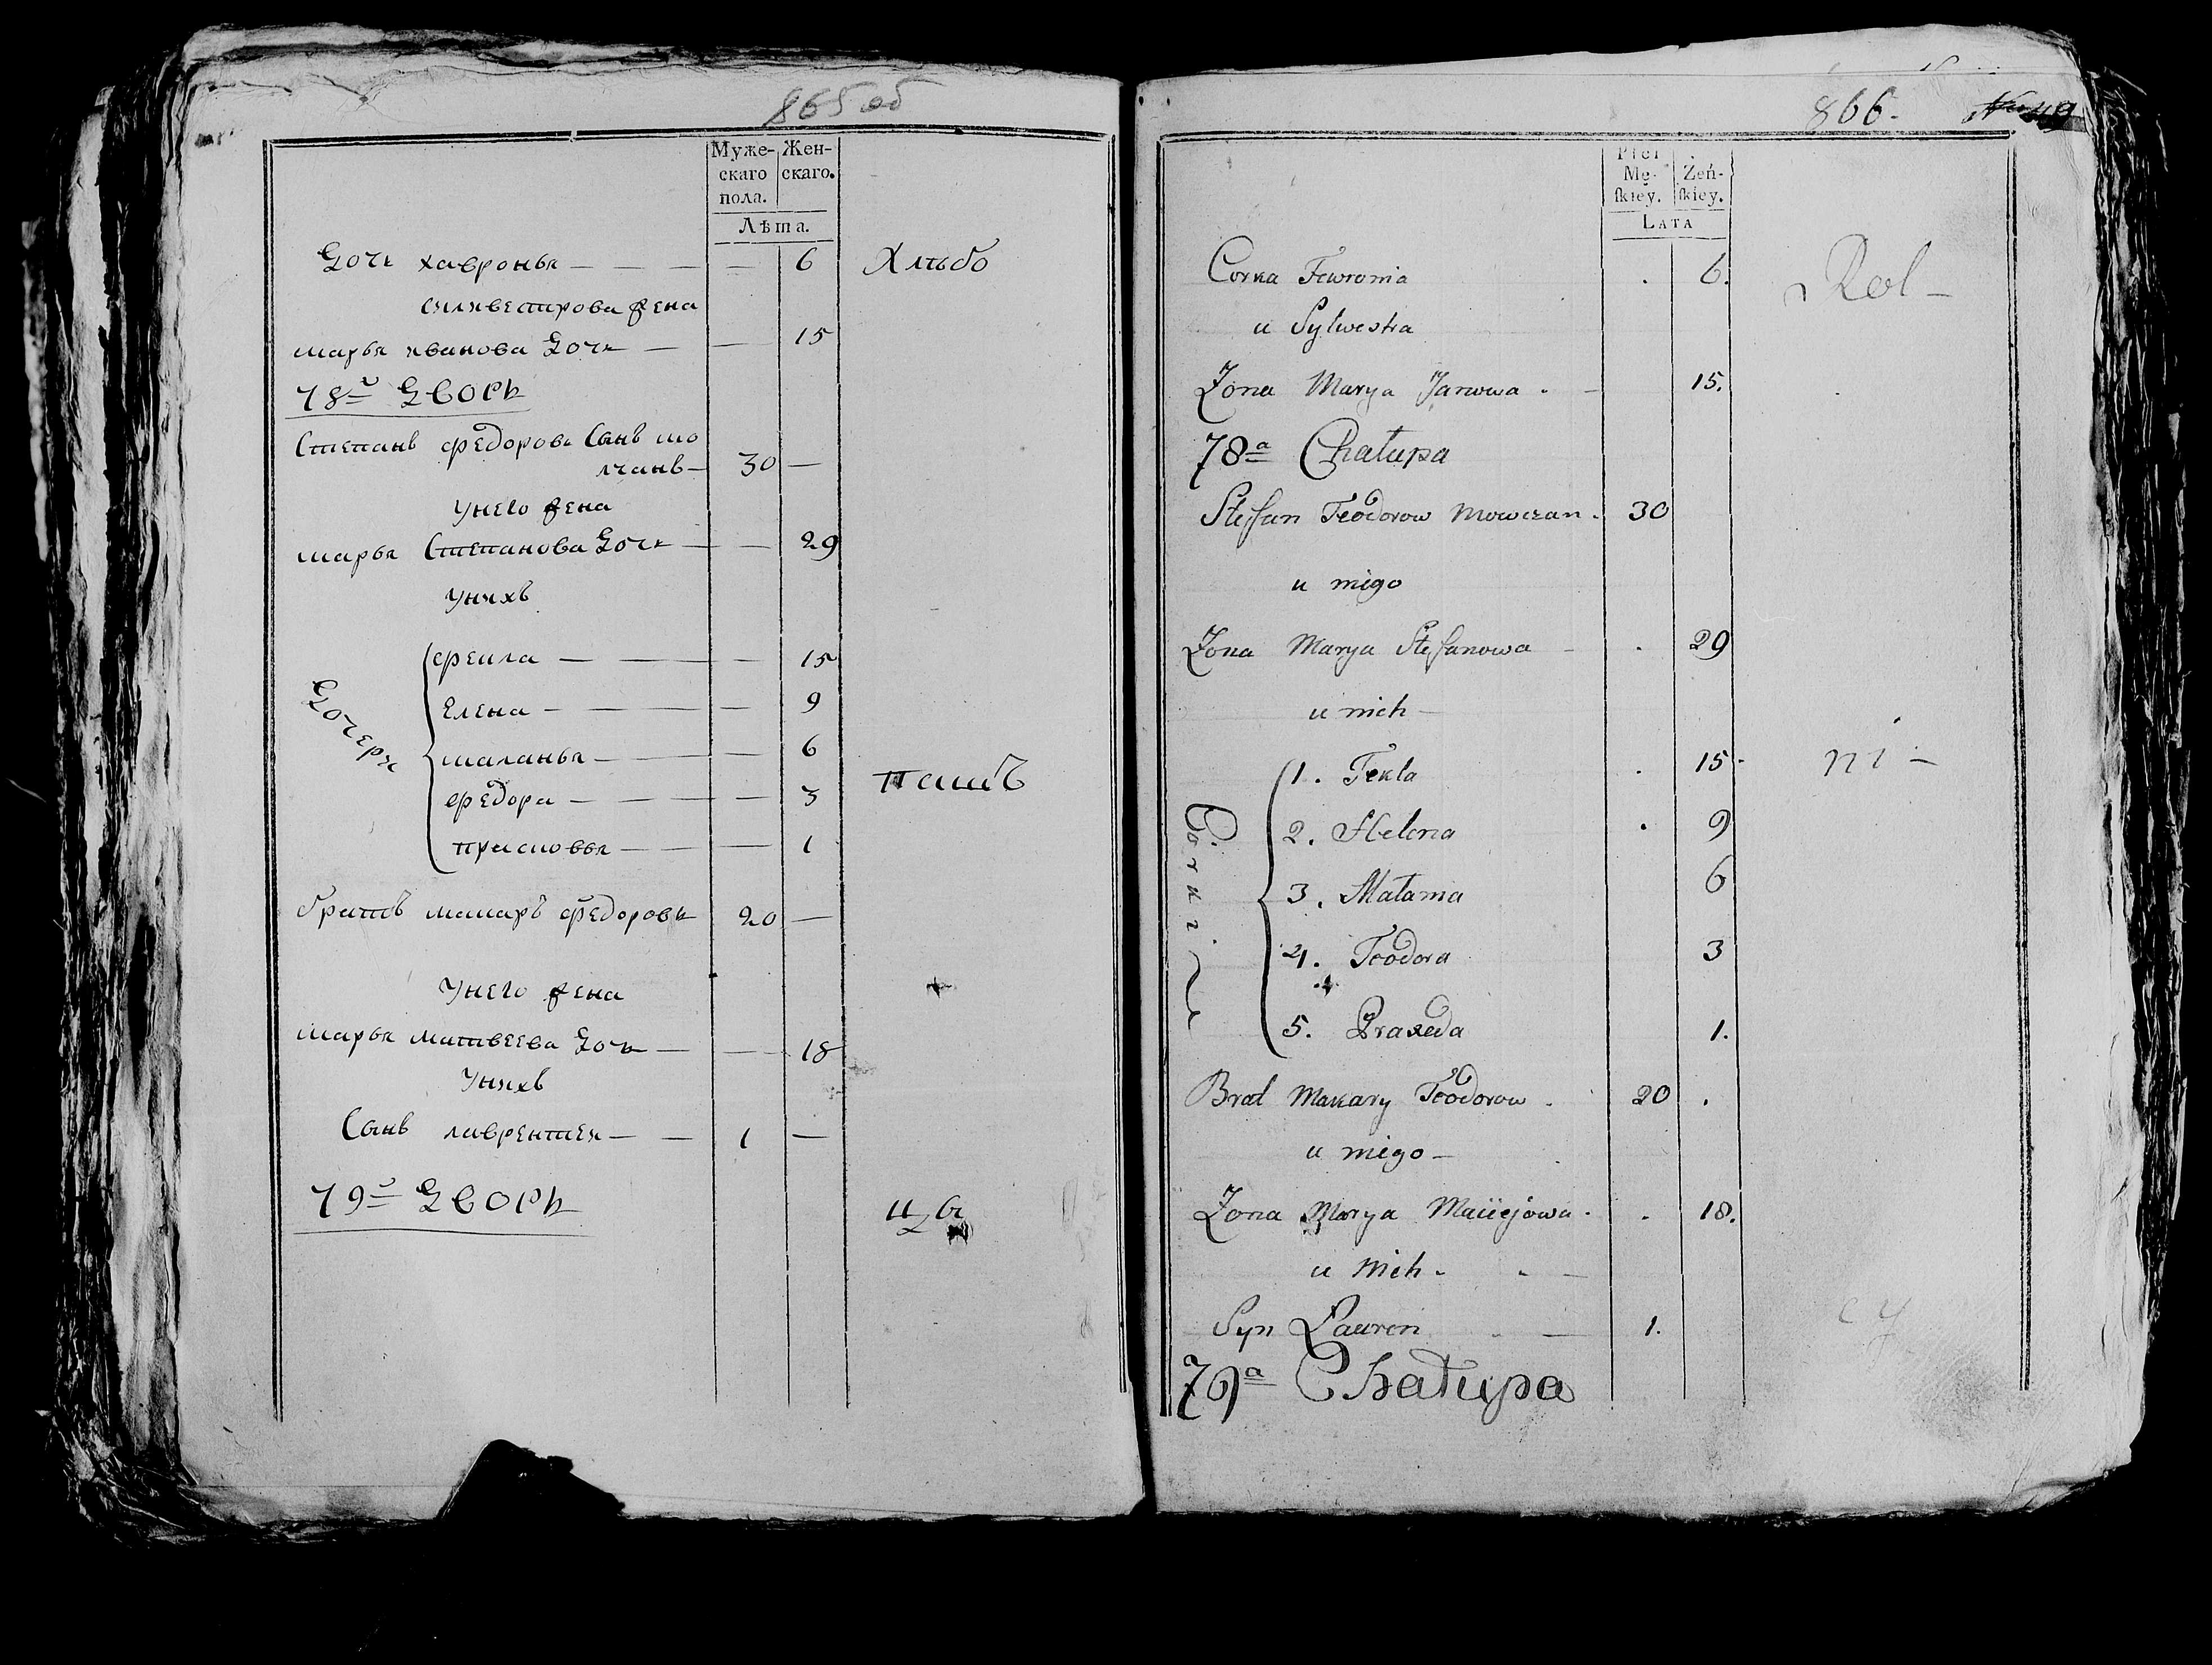 865 об
Муже-
скаго
пола.
Жен-
скаго.
Лѣта.
Дочь хавронья — — — — 6 Хлѣбо
силивестрова жена
марья иванова дочь — — 15
78й дворъ
Степанъ федоровъ Сынъ мо
лчанъ — 30 —
У него жена
марья Степанова дочь — — 29
У нихъ
Дочери
фекла — — — 15
Елена — — — 9
маланья — — — 6
пашъ
федора — — — — 3
прасковья — — — 1
братъ макаръ федоровъ 20 —
У него жена
марья матвеева дочь — — 18
У нихъ
Сынъ лаврентей — — 1 —
79й дворъ
цы
866.
Płci
Mę-
ſkiey.
Żeń-
ſkiey.
LATA
Corka Fewronia . 6. Rol —
u Sylwestra
Zona Marya Janowa . — 15.
78a Chałupa
Stefan Teodorow Mowczan . 30
u niego
Zona Marya Stefanowa — . 29
u nich —
Córki
1. Tekla . 15 . ni —
2. Helena . 9
3. Małania 6
4. Teodora 3
5. Praxeda 1.
Brat Makary Teodorow . 20 .
u niego —
Zona Marya Maciejowa . . 18.
u Nich . . —
Syn Lauren . — 1.
cy
79a Chałupa